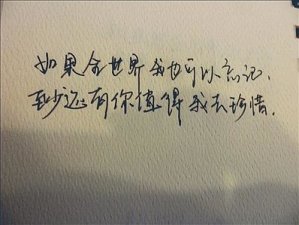 如果全世界我也可以忘记、
至少还有你值得我去珍惜.